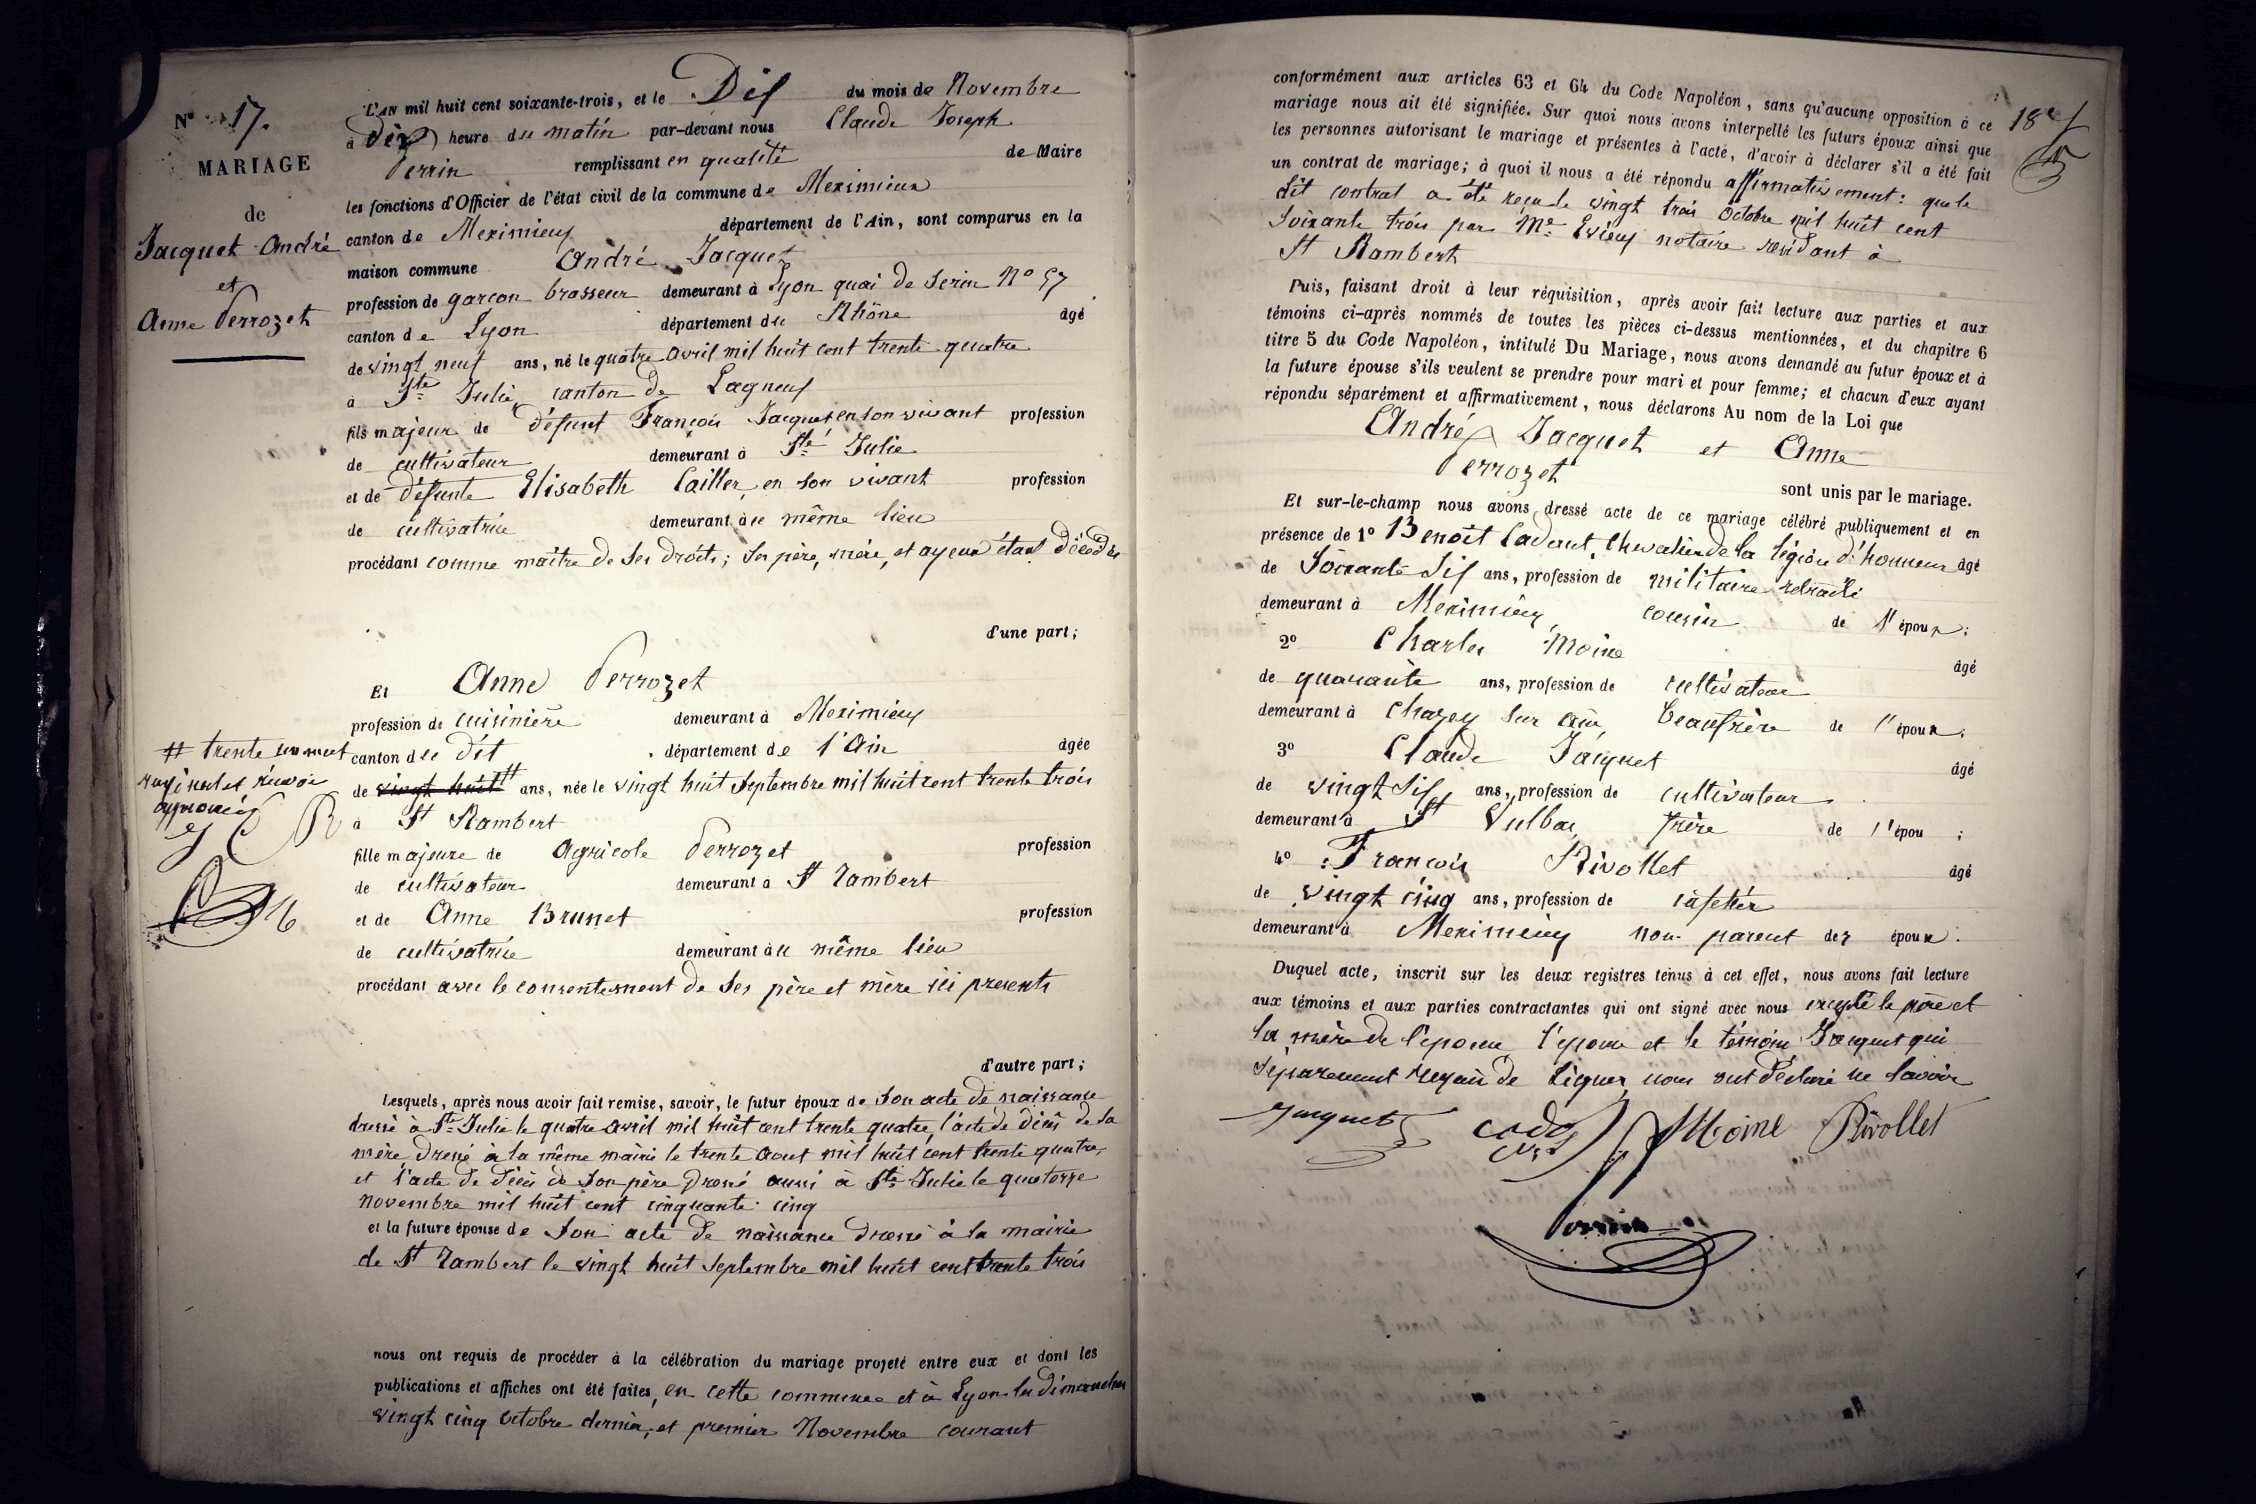 N° 17.
MARIAGE
de
Jacquet André
et
Anne Perrozet
L'AN mil huit cent soixante-trois, et le Dix du mois de Novembre
à dix heure du matin par-devant nous Claude Joseph
Perrin remplissant en qualité de Maire
les fonctions d'Officier de l'état civil de la commune de Meximieux
canton de Meximieux département de l'Ain, sont comparus en la
maison commune André Jacquet
profession de garçon brasseur demeurant à Lyon quai de Serin N° 57
canton de Lyon département du Rhône âgé
de vingt neuf ans, né le quatre avril mil huit cent trente quatre
à Ste Julie canton de Lagneux
fils majeur de défunt François Jacquet en son vivant profession
de cultivateur demeurant à Ste Julie
et de défunte Elisabeth Cailler en son vivant profession
de cultivatrice demeurant au même lieu
procédant comme maître de ses droits; ses père, mère, et ayeux étant décédés
d'une part;
Et Anne Perrozet
profession de cuisinière demeurant à Meximieux
canton du dit département de l'Ain âgée
# trente un mot
rayé nul et renvoi
approuvés
de vingt huit # ans, née le vingt huit Septembre mil huit cent trente trois
à St Rambert
fille majeure de Agricole Perrozet profession
de cultivateur demeurant à St Rambert
et de Anne Brunet profession
de cultivatrice demeurant au même lieu
procédant avec le consentement de ses père et mère ici présents
d'autre part;
Lesquels, après nous avoir fait remise, savoir, le futur époux de son acte de naissance
dressé à Ste Julie le quatre avril mil huit cent trente quatre, l'acte de décès de sa
mère dressé à la même mairie le trente aout mil huit cent trente quatre,
et l'acte de décès de son père dressé aussi à Ste Julie le quatorze
novembre mil huit cent cinquante cinq
et la future épouse de son acte de naissance dressé à la mairie
de St Rambert le vingt huit Septembre mil huit cent trente trois
nous ont requis de procéder à la célébration du mariage projeté entre eux et dont les
publications et affiches ont été faites, en cette commune et à Lyon les dimanches
vingt cinq octobre dernier, et premier Novembre courant
conformément aux articles 63 et 64 du Code Napoléon, sans qu'aucune opposition à ce
mariage nous ait été signifiée. Sur quoi nous avons interpellé les futurs époux ainsi que
les personnes autorisant le mariage et présentes à l'acte, d'avoir à déclarer s'il a été fait
un contrat de mariage; à quoi il nous a été répondu affirmativement: que le
dit contrat a été reçu le vingt trois Octobre mil huit cent
soixante trois par Me Evieux notaire résidant à
St Rambert
18
Puis, faisant droit à leur réquisition, après avoir fait lecture aux parties et aux
témoins ci-après nommés de toutes les pièces ci-dessus mentionnées, et du chapitre 6
titre 5 du Code Napoléon, intitulé Du Mariage, nous avons demandé au futur époux et à
la future épouse s'ils veulent se prendre pour mari et pour femme; et chacun d'eux ayant
répondu séparément et affirmativement, nous déclarons Au nom de la Loi que
André Jacquet et Anne
Perrozet
sont unis par le mariage.
Et sur-le-champ nous avons dressé acte de ce mariage célébré publiquement et en
présence de 1° Benoît Cadout, Chevalier de la légion d'honneur âgé
de Soixante Six ans, profession de militaire retraité
demeurant à Meximieux cousin de l'époux;
2° Charles Moine âgé
de quarante ans, profession de cultivateur
demeurant à Chazey sur ain, beaufrère de l'époux;
3° Claude Jacquet âgé
de vingt Six, ans, profession de cultivateur
demeurant à St Vulbas, frère de l'épou;
4° François Rivollet âgé
de vingt cinq ans, profession de cafetier
demeurant à Meximieux non parent des époux.
Duquel acte, inscrit sur les deux registres tenus à cet effet, nous avons fait lecture
aux témoins et aux parties contractantes qui ont signé avec nous excepté le père et
la mère de l'épouse l'épouse et le témoin Jacquet qui
séparément requis de signer nous ont déclaré ne savoir
Jacquet Moine Rivollet
Perrin